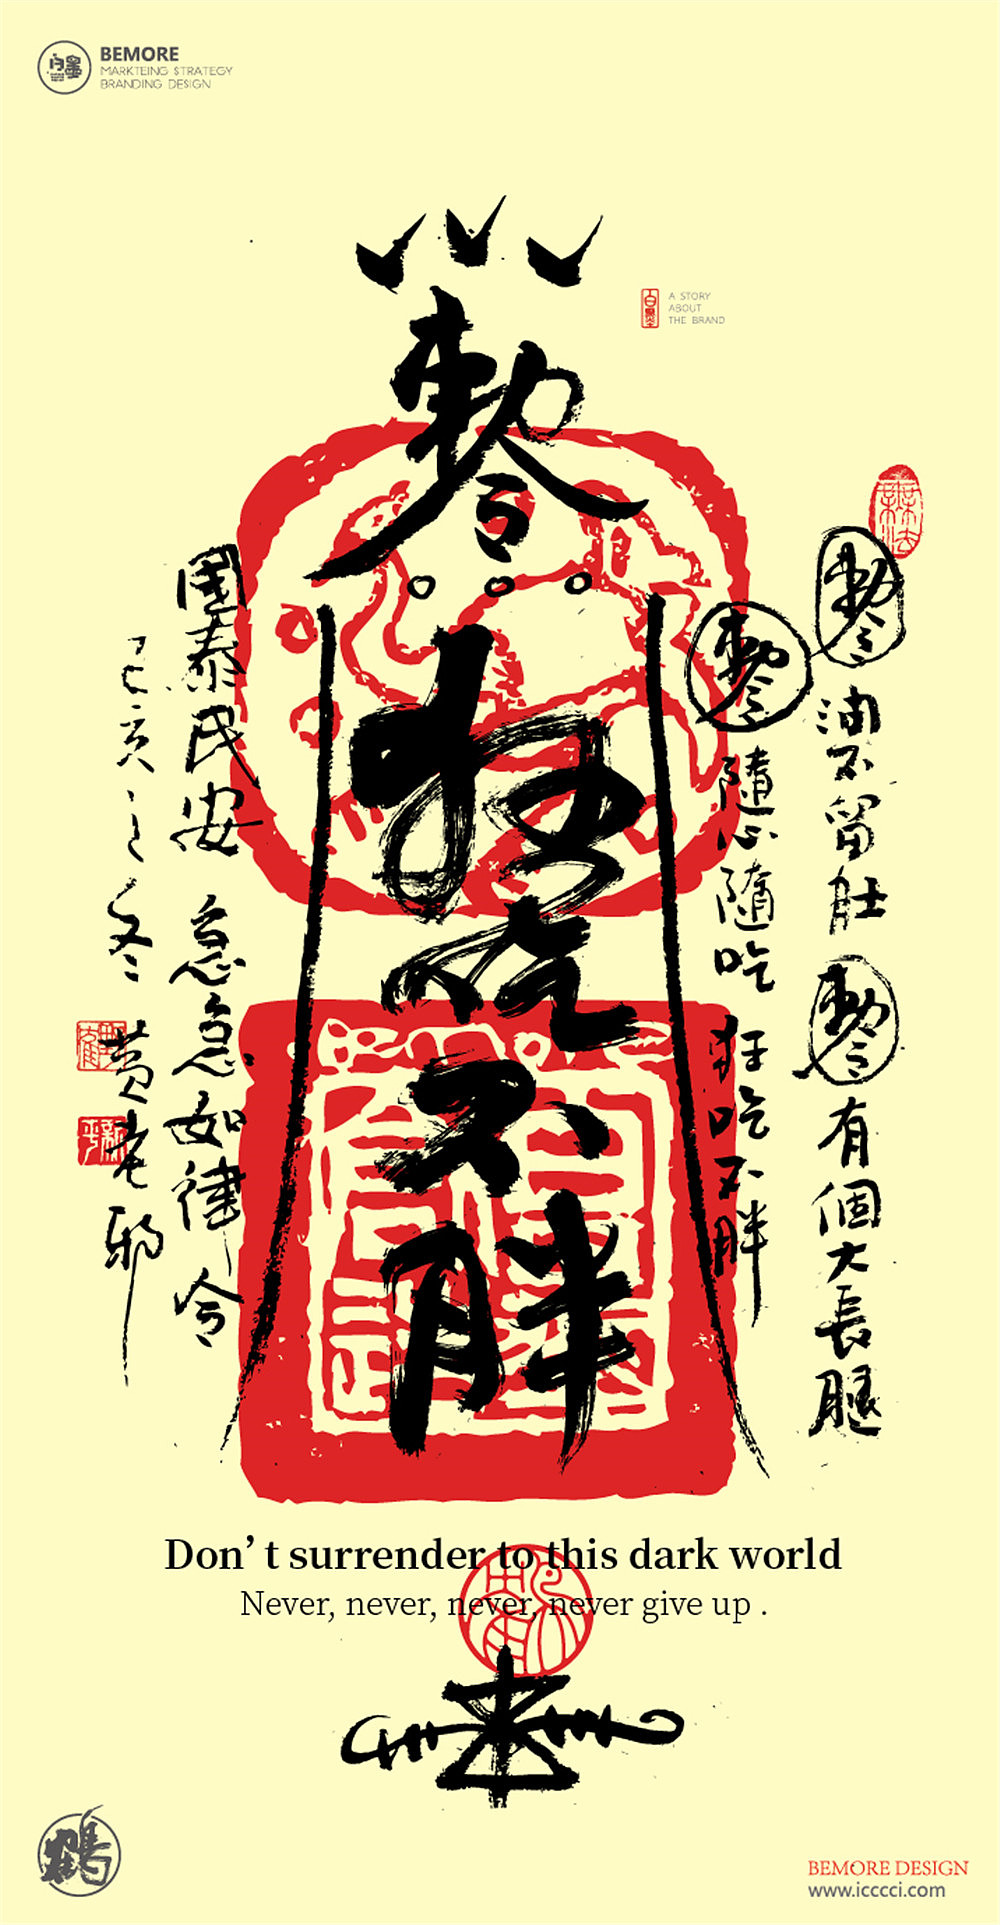 BEMORE
MARKTEING STRATEGY
BRANDING DESIGN
A STORY
ABOUT
THE BRAND
敕令
狂吃不胖
敕令 油不留肚 敕令 有個大長腿
敕令 隨心隨吃 狂吃不胖
國泰民安 急急如律令
己亥之冬 黄老邪
Don’t surrender to this dark world
Never, never, never, never give up .
鶴
BEMORE DESIGN
www.icccci.com